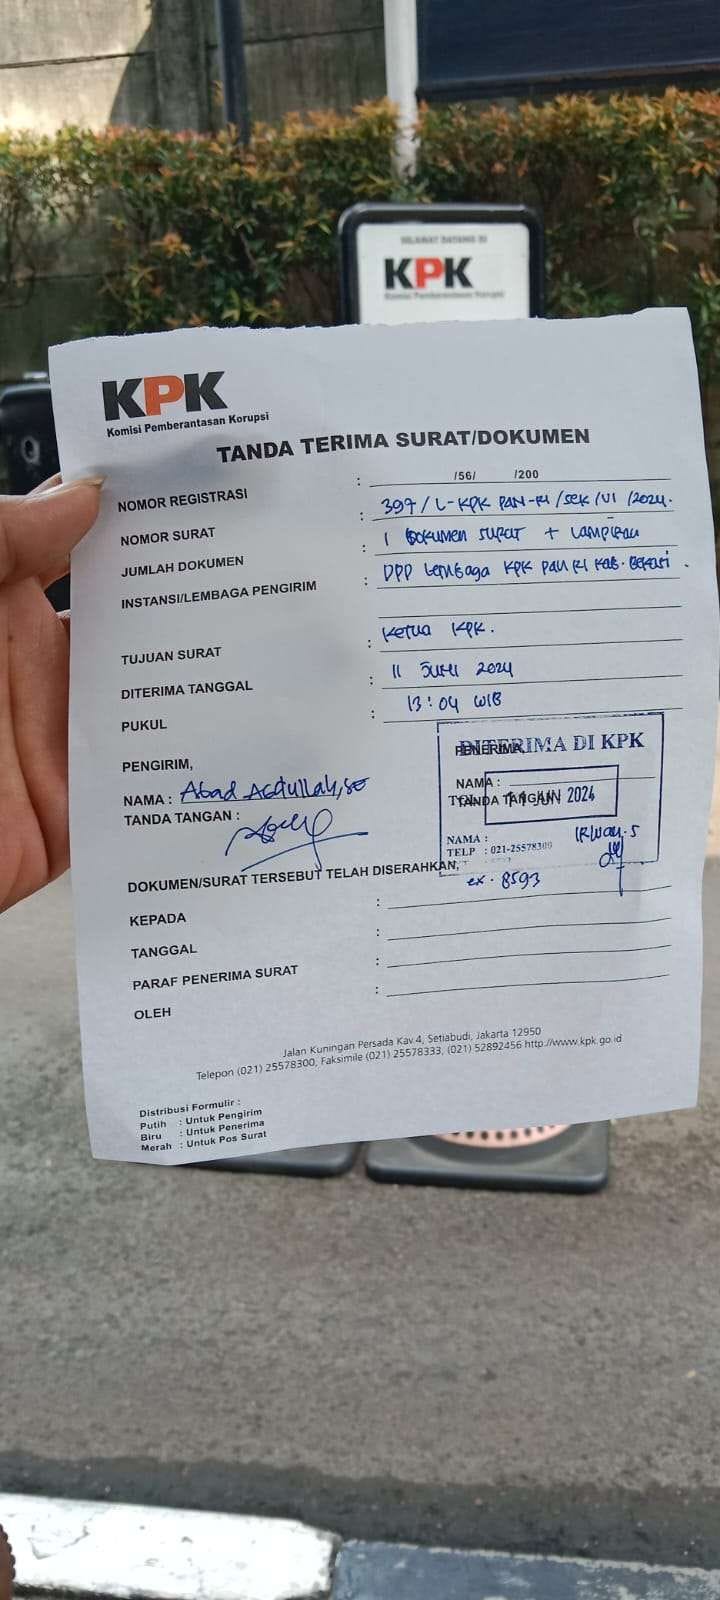 SELAMAT DATANG DI
KPK
Komisi Pemberantasan Korupsi
KPK
Komisi Pemberantasan Korupsi
TANDA TERIMA SURAT/DOKUMEN
NOMOR REGISTRASI : /56/ /200
NOMOR SURAT : 397/L-KPK PAN-RI/SEK/VI/2024.
JUMLAH DOKUMEN : 1 Dokumen surat + Lampiran
INSTANSI/LEMBAGA PENGIRIM : DPP Lembaga KPK PAN RI Kab. Bekasi.
TUJUAN SURAT : Ketua KPK.
DITERIMA TANGGAL : 11 Juni 2024
PUKUL : 13:04 WIB
PENGIRIM,
NAMA : Abad Abdullah, SE
TANDA TANGAN :
PENERIMA,
NAMA :
TANDA TANGAN
DITERIMA DI KPK
TGL 11 JUN 2024
NAMA : Irwan. S
TELP : 021-25578300
ex. 8593
DOKUMEN/SURAT TERSEBUT TELAH DISERAHKAN,
KEPADA :
TANGGAL :
PARAF PENERIMA SURAT :
OLEH :
Jalan Kuningan Persada Kav.4, Setiabudi, Jakarta 12950
Telepon (021) 25578300, Faksimile (021) 25578333, (021) 52892456 http.//www.kpk.go.id
Distribusi Formulir :
Putih : Untuk Pengirim
Biru : Untuk Penerima
Merah : Untuk Pos Surat